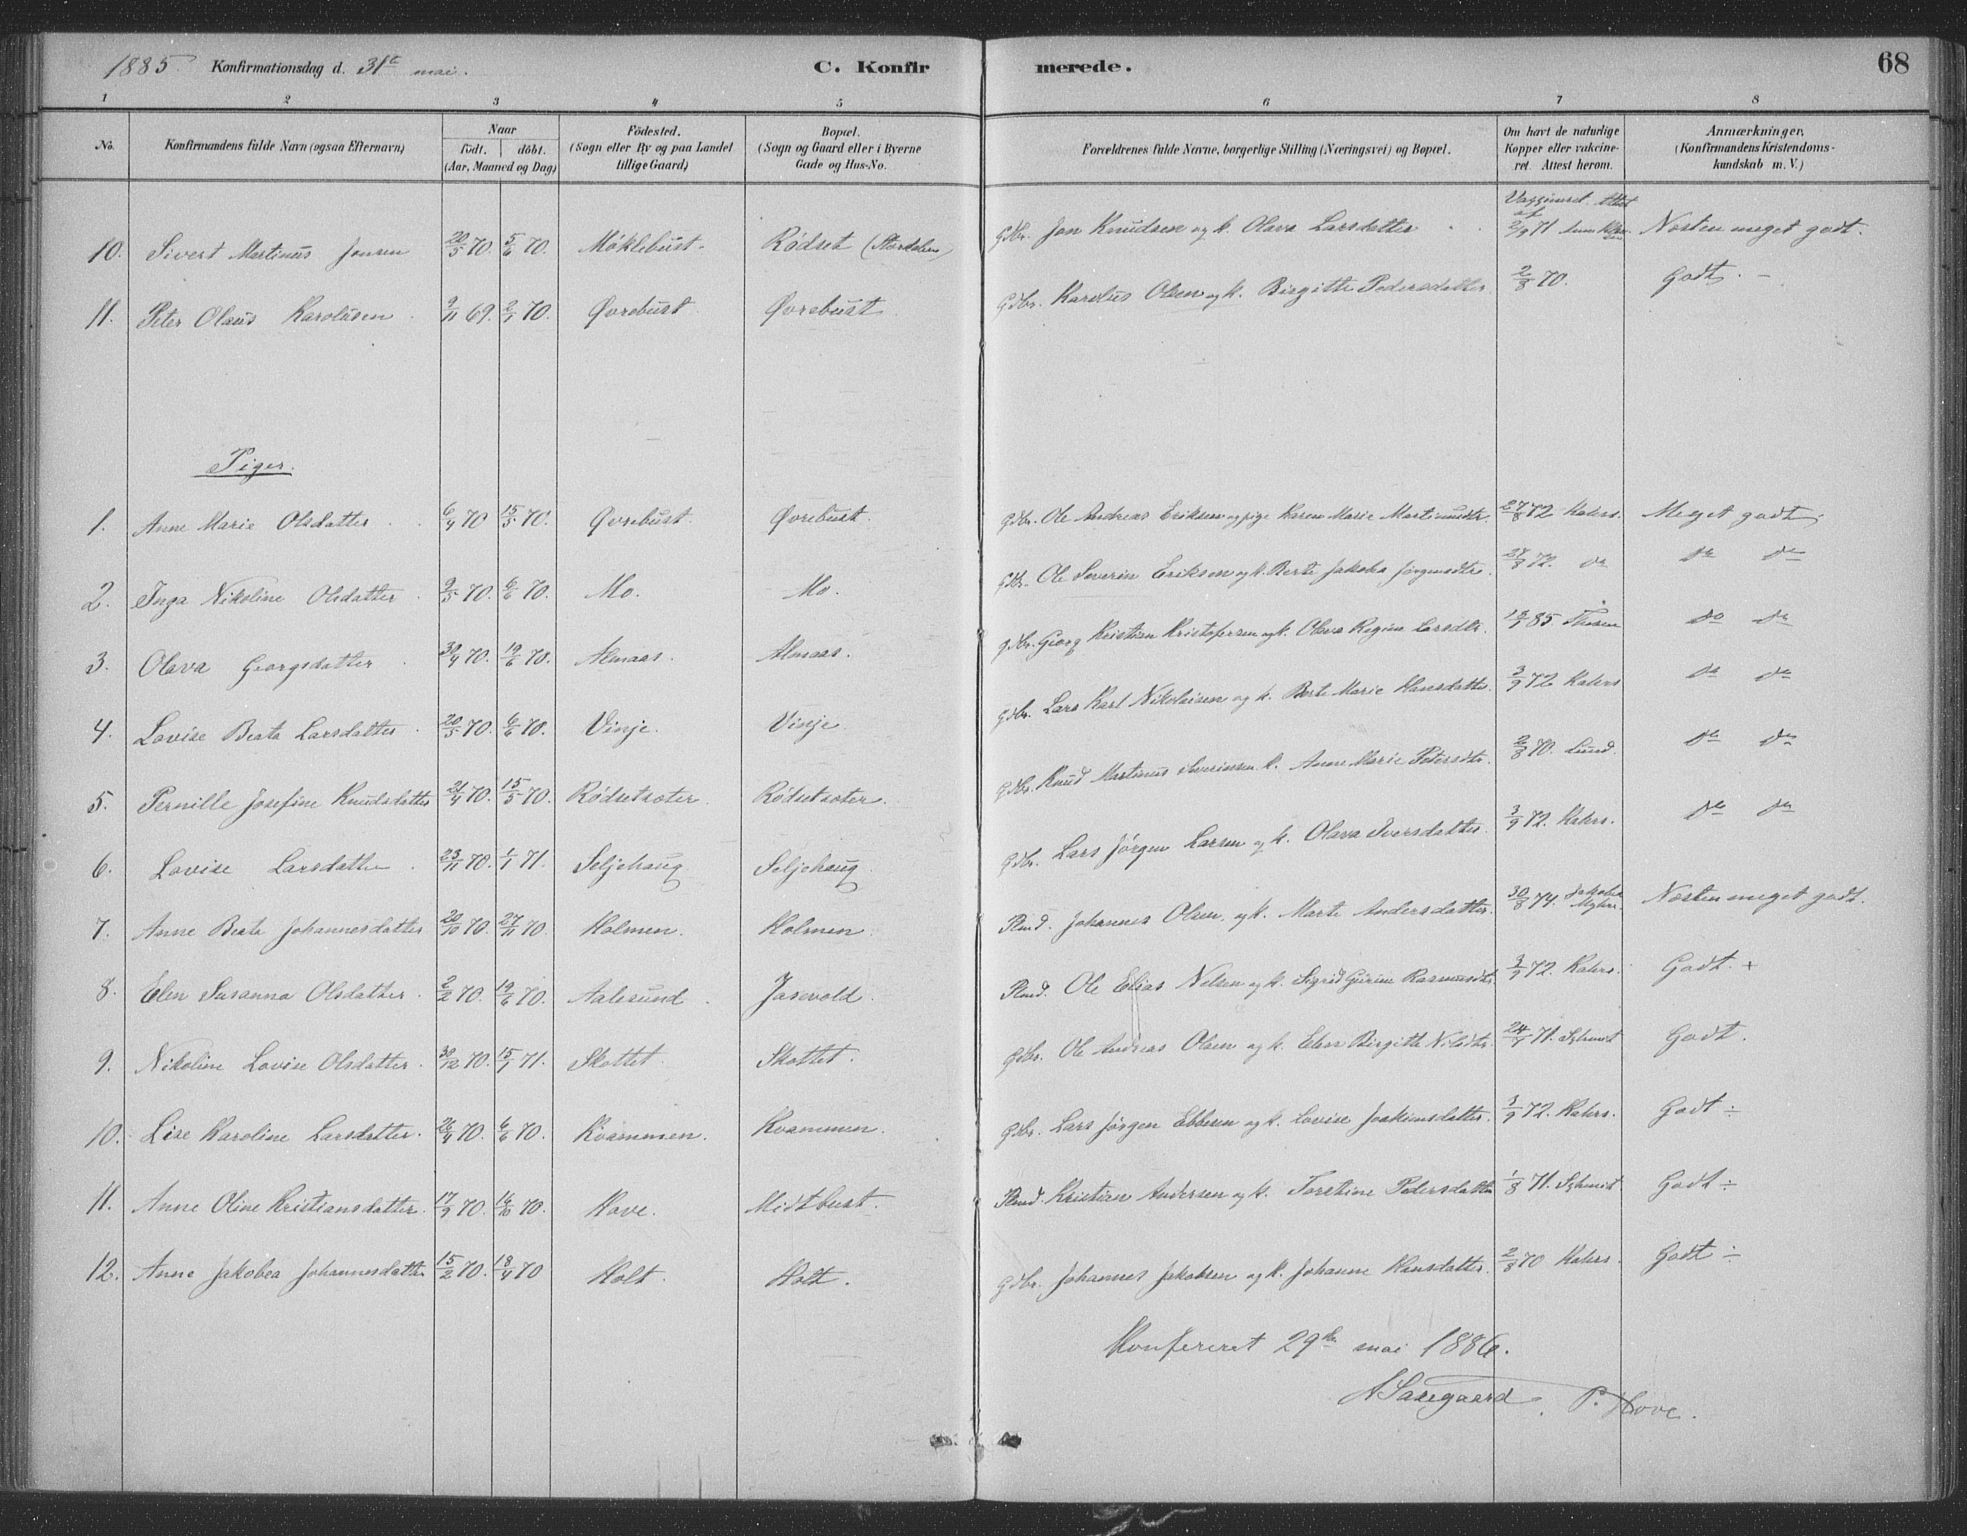 1885 Konfirmationsdag d. 31te mai. C. Konfirmerede. 68
1 2 3 4 5 6 7 8
No. Konfirmandens fulde Navn (ogsaa Efternavn) Naar födt. döbt. (Aar, Maaned og Dag) Födested. (Sogn eller By og paa Landet tillige Gaard) Bopæl. (Sogn og Gaard eller i Byerne Gade og Hus-No. Forældrenes fulde Navne, borgerlige Stilling (Næringsvei) og Bopæl. Om havt de naturlige Kopper eller vakcineret. Attest herom. Anmærkninger, (Konfirmandens Kristendomskundskab m. V.)
10. Sivert Martinus Jonsen 20/5 70. 5/6 70. Möklebust. Rödset (Stordalen) Gdbr. Jon Knudsen og k. Olava Larsdatter Vaccineret Attest af 2/9 71 Næsten meget godt.
11. Peter Olaus Karolusen 9/11 69. 2/1 70. Øvrebust Øvrebust Gdbr. Karolus Olsen og k. Birgitte Pedersdatter 2/8 70. Godt.
Piger.
1. Anne Marie Olsdatter 6/4 70 15/5 70. Øvrebust. Øvrebust. Gdbr. Ole Andreas Eriksen og pige Karen Marie Martinusdtr. 27/8 72 Kahrs. Meget godt.
2. Inga Nikoline Olsdatter 9/5 70. 6/6 70. Mo. Mo. Gdbr. Ole Severin Eriksen og k. Berte Jakoba Jørgensdtr. 27/8 72. do do do
3. Olava Georgsdatter 30/4 70. 19/6 70. Almaas. Almaas. Gdbr. Georg Kristian Kristofersen og k. Olava Regine Larsdtr. 13/1 85. do do
4. Lovise Beata Larsdatter 20/5 70. 6/6 70. Vinje. Vinje Gdbr. Lars Karl Nikolaisen og k. Berte Marie Hansdatter. 3/9 72 Kahrs do do
5. Pernille Josefine Knudsdatter 21/4 70. 15/5 70. Rödsetsæter. Rödsetsæter. Gdbr. Knud Martinus Severinsen k. Anne Marie Petersdtr. 2/8 70. Lund. do do
6. Lovise Larsdatter 23/11 70. 1/1 71. Seljehaug Seljehaug Gdbr. Lars Jörgen Larsen og k. Olava Iversdatter. 3/9 72. Kahrs. do do
7. Anne Beate Johannesdatter 20/10 70. 27/11 70. Holmen. Holmen Plmd. Johannes Olsen og k. Marte Andersdatter. 30/8 74. Næsten meget godt.
8. Elen Susanna Olsdatter. 2/2 70. 19/6 70. Aalesund Jasevold. Plmd. Ole Elias Nelsen og k. Sigrid Gurine Rasmusdtr 3/9 72. Kahrs. Godt. +
9. Nikoline Lovise Olsdatter. 30/12 70. 15/1 71. Skottet. Skottet. Gdbr. Ole Andreas Olsen og k. Elen Birgitte Nilsdtr. 71. Schmidt Godt.
10. Lise Karoline Larsdatter. 26/4 70. 6/6 70. Kvammen. Kvammen. Gdbr. Lars Jörgen Ebbesen og k. Lovise Joakimsdatter. 3/9 72. Kahrs. Godt ÷
11. Anne Oline Kristiansdatter. 17/9 70. 16/10 70. Hove. Midtbust. Plmd. Kristian Andersen og k. Torstine Pedersdatter 1/8 71. Schmidt Godt ÷
12. Anne Jakobea Johannesdatter 15/2 70. 18/4 70 Holt. Holt. Gdbr. Johannes Jakobsen og k. Johanne Hansdatter. 2/8 70 Kahrs. Godt ÷
Konfereret 29de mai 1886.
A Saxegaard. P. Hove.